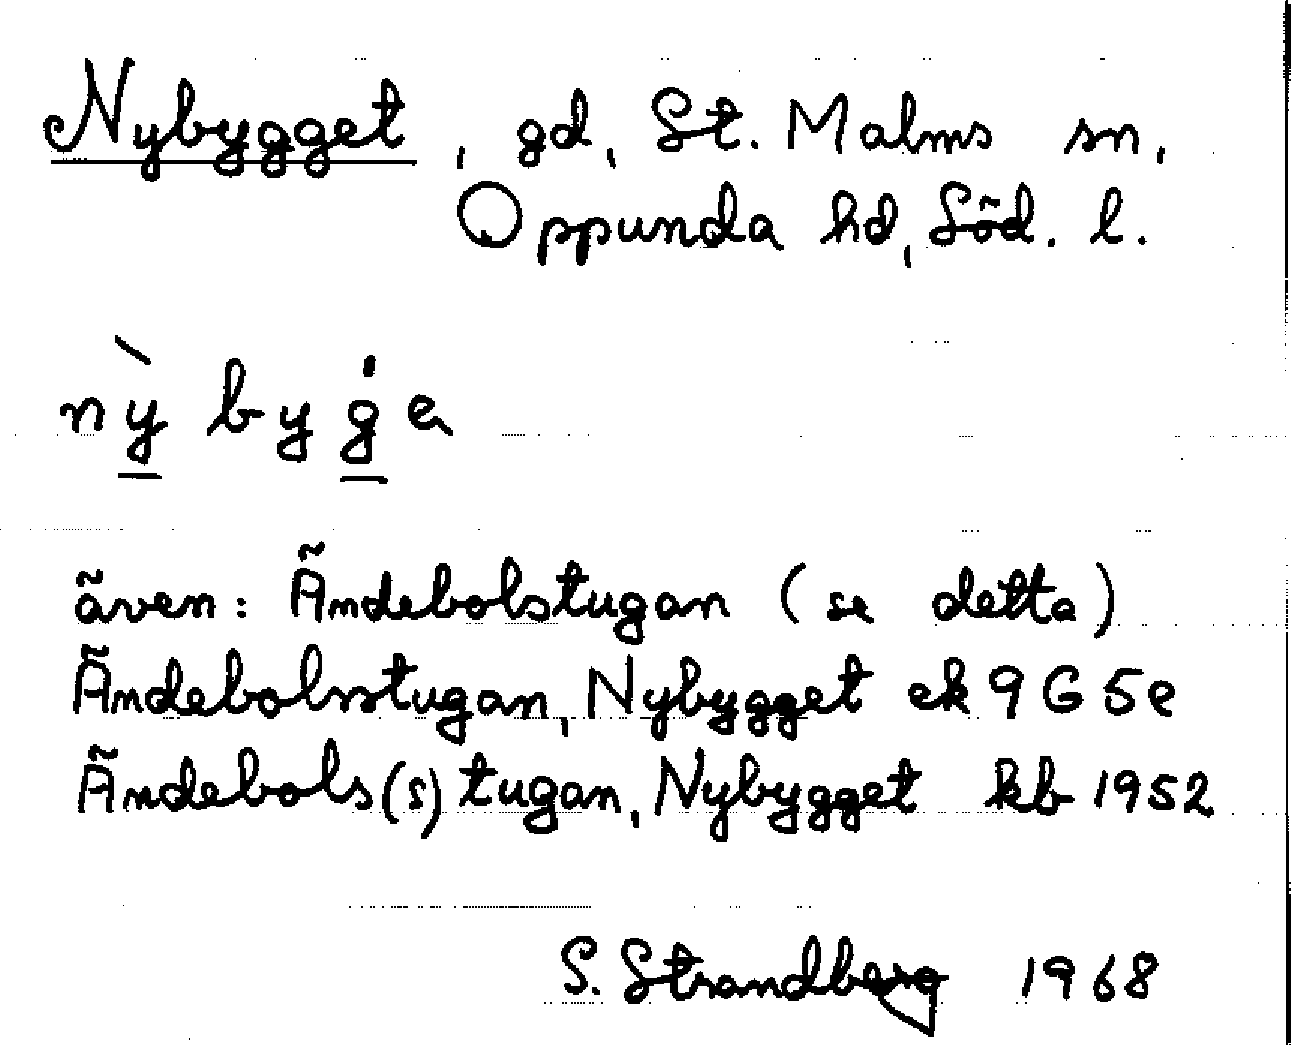 Nybygget, gd, St. Malms sn,
Oppunda hd, Söd. l.
nỳbyġe
även: Ändebolstugan (se detta)
Ändebolsstugan, Nybygget ek 9G5e
Ändebols(s)tugan, Nybygget kb 1952
S. Strandberg 1968